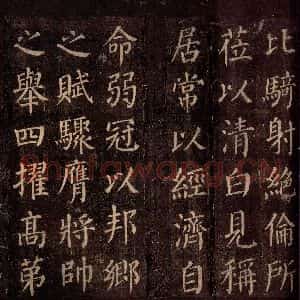 比騎射絕倫所
莅以清白見稱
居常以經濟自
命弱冠以邦鄉
之賦驟膺將帥
之舉四擢高第